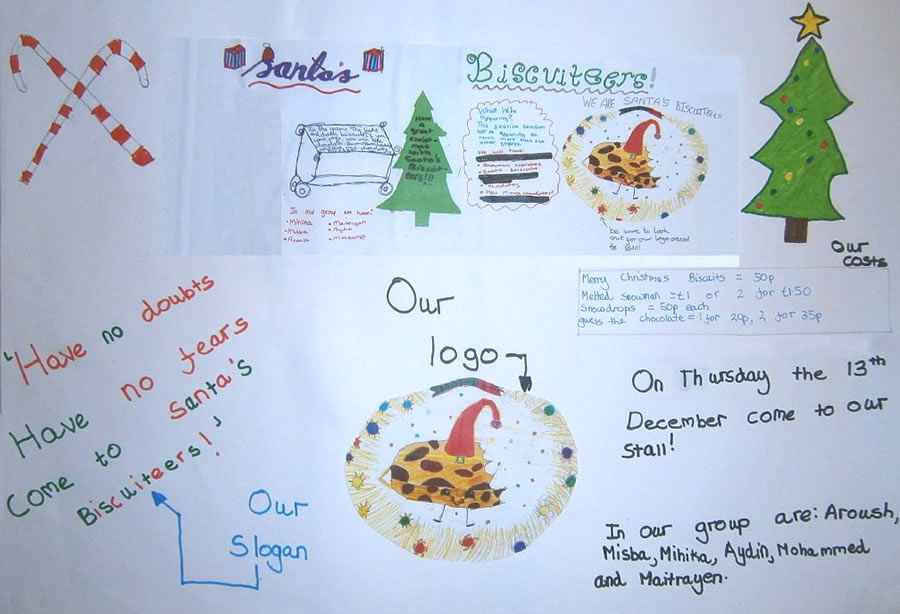 Santa's Biscuiteers!
WE ARE SANTA'S BISCUITEERS
What We're
Preparing?
The festive season
We will have:
Have
a
great
christ-
mas
with
Santa's
Biscuit-
eers!!!
In our group we have:
• Mihika
• Maitrayen
• Misba
• Aydin
• Aroush
• Mohammed
be sure to look
out for our logo around
Our
costs
Merry Christmas Biscuits = 50p
Melted snowman = £1 or 2 for £1.50
Snowdrops = 50p each
guess the chocolate = 1 for 20p, 2 for 35p
Our
logo
'Have no doubts
Have no fears
Come to Santa's
Biscuiteers!'
Our
Slogan
On Thursday the 13th
December come to our
stall!
In our group are: Aroush,
Misba, Mihika, Aydin, Mohammed
and Maitrayen.